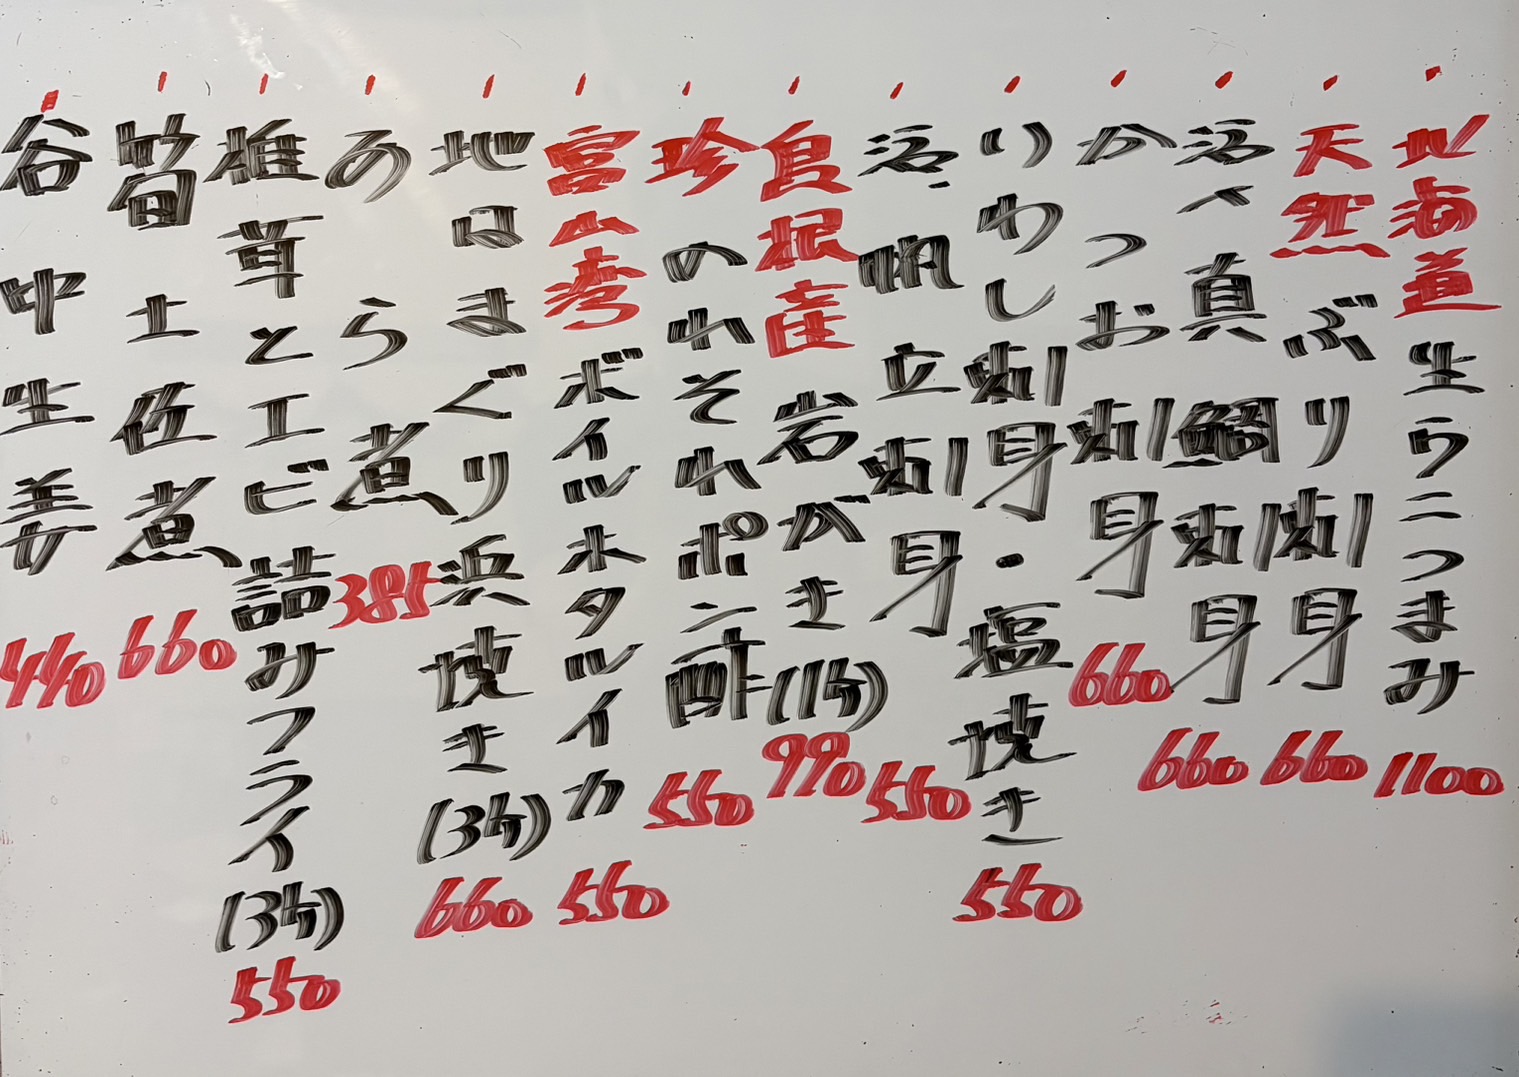 北海道 生ウニつまみ 1100
天然 ぶり刺身 660
活〆真鯛刺身 660
かつお刺身 660
いわし刺身・塩焼き 550
活帆立刺身 550
島根産 岩がき(1ケ) 990
珍 のれそれポン酢 550
富山湾 ボイルホタルイカ 550
地はまぐり浜焼き(3ケ) 660
あら煮 385
椎茸とエビ詰みフライ(3ケ) 550
筍土佐煮 660
谷中生姜 440